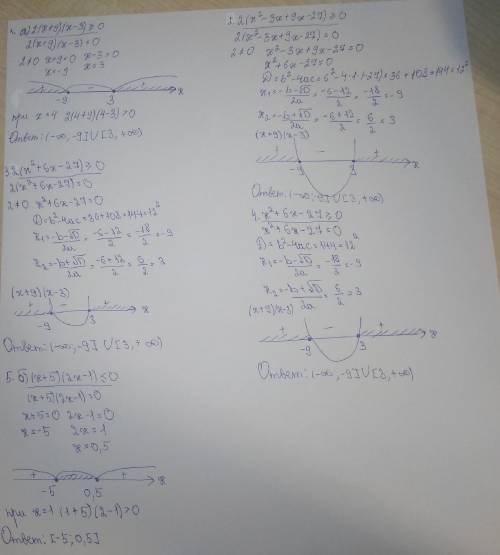 1. а) 2(x+9)(x-3)≥0
2(x+9)(x-3)=0
2≠0 x+9=0 x-3=0
x=-9 x=3
+ - + x
-9 3
при x=4 2(4+9)(4-3)>0
Ответ: (-∞, -9]∪[3, +∞)
3. 2(x²+6x-27)≥0
2(x²+6x-27)=0
2≠0 x²+6x-27=0
D=b²-4ac=36+108=144=12²
x₁=-b-√D/2a=-6-12/2=-18/2=-9
x₂=-b+√D/2a=-6+12/2=6/2=3
(x+9)(x-3)
+ - + x
-9 3
Ответ: (-∞; -9]∪[3, +∞)
5. б) (x+5)(2x-1)≤0
(x+5)(2x-1)=0
x+5=0 2x-1=0
x=-5 2x=1
x=0,5
+ - + x
-5 0,5
при x=1 (1+5)(2-1)>0
Ответ: [-5; 0,5]
2. 2(x²-3x+9x-27)≥0
2(x²-3x+9x-27)=0
2≠0 x²-3x+9x-27=0
x²+6x-27=0
D=b²-4ac=6²-4·1·(-27)=36+108=144=12²
x₁=-b-√D/2a=-6-12/2=-18/2=-9
x₂=-b+√D/2a=-6+12/2=6/2=3
(x+9)(x-3)
+ - + x
-9 3
Ответ: (-∞; -9]∪[3, +∞)
4. x²+6x-27≥0
x²+6x-27=0
D=b²-4ac=144=12²
x₁=-b-√D/2a=-18/2=-9
x₂=-b+√D/2a=6/2=3
(x+9)(x-3)
+ - + x
-9 3
Ответ: (-∞, -9]∪[3, +∞)